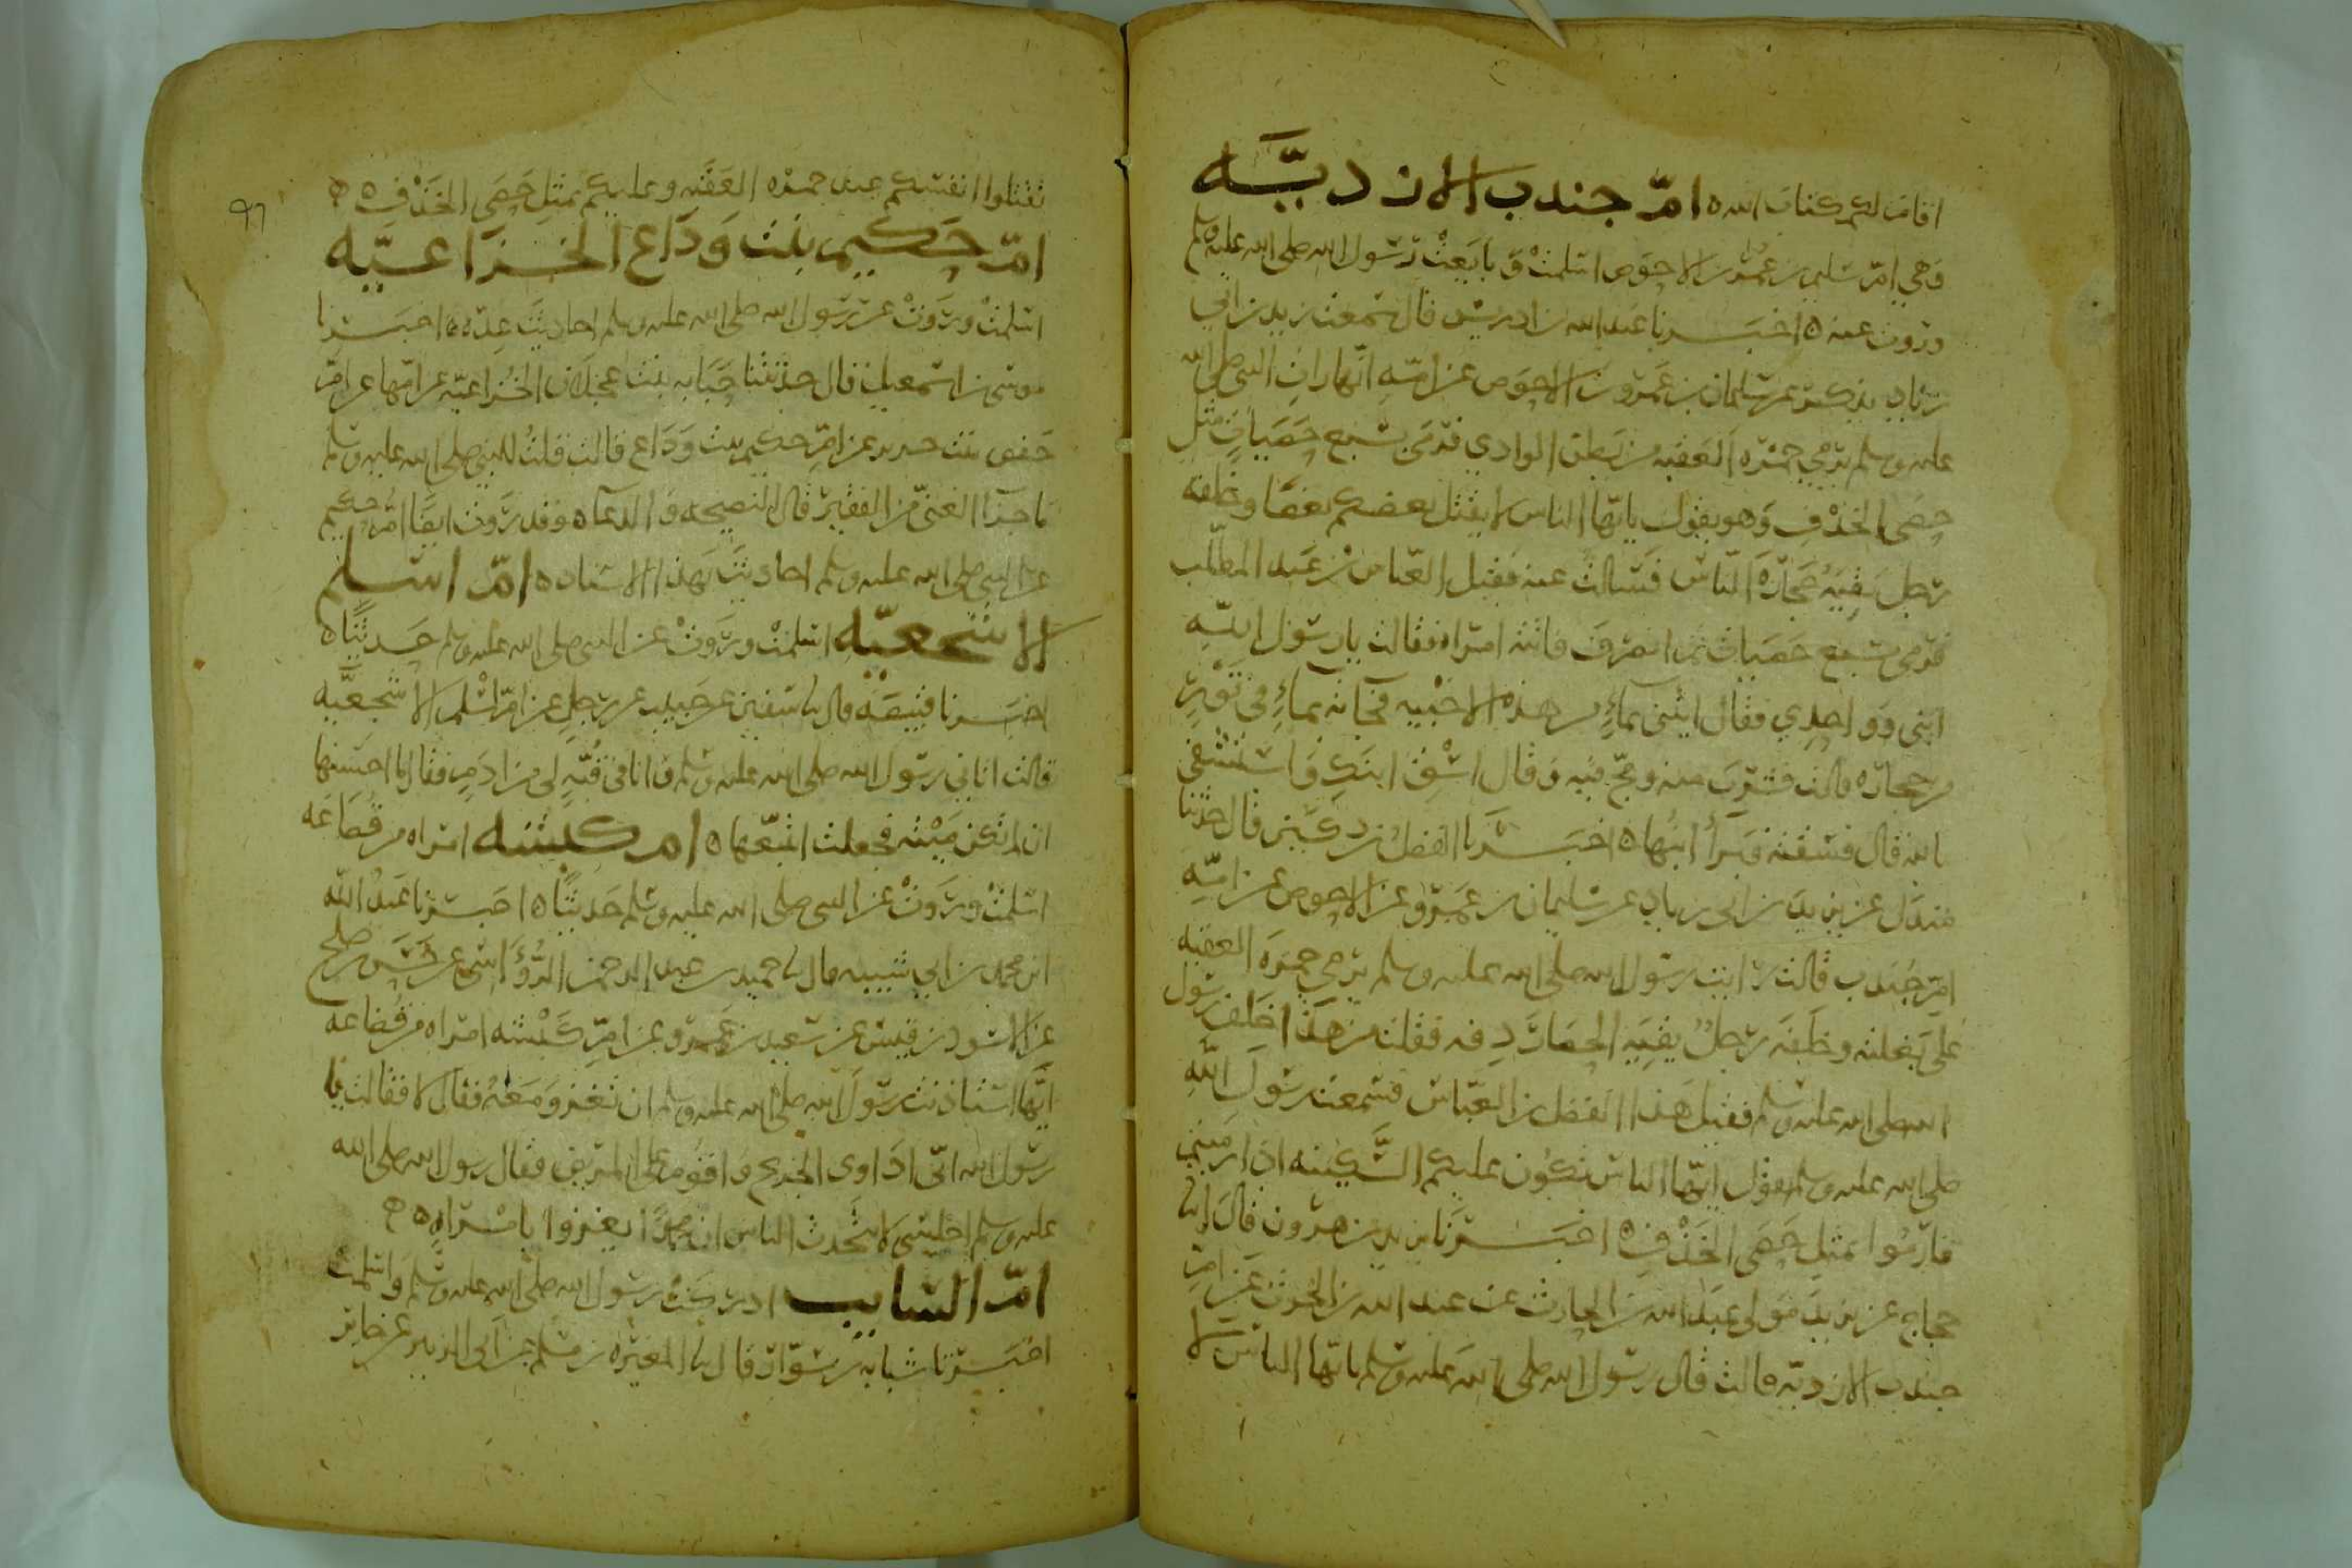 اقام لكم كتاب الله ه امّ جندب الازديّه
وهي امّ سليمن بن عمرو بن الاحوص اسلمت وبايعت رسول الله صلى الله عليه وسلم
وروت عنه ه اخبرنا عبد الله بن ادريس قال سمعت يزيد بن ابي
زياد يذكر عن سليمان بن عمرو بن الاحوص عن امّه انها رات النبي صلى الله
عليه وسلم يرمي جمرة العقبه من بطن الوادي فرمى بسبع حصيات مثل
حصى الخذف وهو يقول يايّها الناس لا يقتل بعضكم بعضا وخلفه
رجل يقيه حجارة الناس فسالت عنه فقيل العباس بن عبد المطلب
فرمى بسبع حصيات ثم انصرف فاتته امراه فقالت يا رسول الله
ابني ووادي فقال ايتني بماء من هذه الاخبيه فجاته بماء في تور
من حجاره قالت فشرب منه ومج فيه وقال اسقي ابنك واستشفي
بالله قال فسقته فبرأ ابنها ه اخبرنا الفضل بن دكين قال حدثنا
مندل عن يزيد بن ابي زياد عن سليمان بن عمرو عن الاحوص عن امّه
امّ جندب قالت رايت رسول الله صلى الله عليه وسلم يرمي جمرة العقبه
على بغلته وخلفه رجل يقيه الحصا ردفه فقلت من هذا خلف رسول
الله صلى الله عليه وسلم فقيل هذا الفضل بن العباس فسمعت رسول الله
صلى الله عليه وسلم يقول ايّها الناس تكون عليكم السكينه اذا رميتم
فارموا بمثل حصى الخذف ه اخبرنا يزيد بن هرون قال انا
حجاج عن يزيد مولى عبد الله بن الحارث عن عبد الله بن الحرث عن امّ
جندب الازديّه قالت قال رسول الله صلى الله عليه وسلم يايّها الناس لا
٩٦
تقتلوا انفسكم عند جمرة العقبه وعليكم بمثل حصى الخذف ه ه
امّ حكيم بنت وداع الخزاعيّه
اسلمت وروت عن رسول الله صلى الله عليه وسلم احاديث عدّه ه اخبرنا
موسى بن اسمعيل قال حدثتنا حبابه بنت عجلان الخزاعيّه عن امّها عن امّ
حفص بنت حرير عن امّ حكيم بنت وداع قالت قلت للنبي صلى الله عليه وسلم
ما جزا الغني من الفقير قال النصيحه والدعاء وقد روت ايضا امّ حكيم
عن النبي صلى الله عليه وسلم احاديث بهذا الاسناد ه امّ اسلم
الاشجعيّه اسلمت وروت عن النبي صلى الله عليه وسلم حديثا ه
اخبرنا قبيصه قال نا سفين عن حبيب عن رجل عن امّ اسلم الاشجعيّه
قالت اتاني رسول الله صلى الله عليه وسلم وانا في قبّه لي من ادم فقال ما احسنها
ان لم تكن ميته فجعلت اتتبّعها ه ام كبشه امراه من قضاعه
اسلمت وروت عن النبي صلى الله عليه وسلم حديثا ه اخبرنا عبد الله
ابن محمد بن ابي شيبه قال نا حميد بن عبد الرحمن الرؤاسي عن حسن بن صلح
عن الاسود بن قيس عن سعيد بن عمرو عن امّ كبشه امراه من قضاعه
انّها استاذنت رسول الله صلى الله عليه وسلم ان تغزو معه فقال لا فقالت يا
رسول الله انّي اداوى الجريح واقوم على المريض فقال رسول الله صلى الله
عليه وسلم اجلسي لا يتحدث الناس ان محمدا يغزوا بامراه ه ه
امّ السايب ادركت رسول الله صلى الله عليه وسلم واسلمت
اخبرنا شبابه بن سوّار قال نا المغيره بن مسلم عن ابي الزبير عن جابر